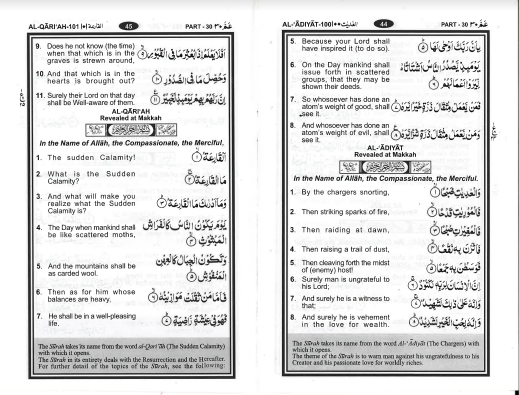 AL-'ĀDIYĀT-100
44
PART - 30
5. Because your Lord shall
have inspired it (to do so).
بِاَنَّ رَبَّكَ اَوْحٰى لَهَا
6. On the Day mankind shall
issue forth in scattered
groups, that they may be
shown their deeds.
يَوْمَىِٕذٍ يَّصْدُرُ النَّاسُ اَشْتَاتًا
لِّيُرَوْا اَعْمَالَهُمْ
7. So whosoever has done an
atom's weight of good, shall
see it.
فَمَنْ يَّعْمَلْ مِثْقَالَ ذَرَّةٍ خَيْرًا يَّرَهٗ
8. And whosoever has done an
atom's weight of evil, shall
see it.
وَمَنْ يَّعْمَلْ مِثْقَالَ ذَرَّةٍ شَرًّا يَّرَهٗ
AL-'ĀDIYĀT
Revealed at Makkah
In the Name of Allāh, the Compassionate, the Merciful,
1. By the chargers snorting,
وَالْعٰدِيٰتِ ضَبْحًا
2. Then striking sparks of fire,
فَالْمُوْرِيٰتِ قَدْحًا
3. Then raiding at dawn,
فَالْمُغِيْرٰتِ صُبْحًا
4. Then raising a trail of dust,
فَاَثَرْنَ بِهٖ نَقْعًا
5. Then cleaving forth the midst
of (enemy) host!
فَوَسَطْنَ بِهٖ جَمْعًا
6. Surely man is ungrateful to
his Lord;
اِنَّ الْاِنْسَانَ لِرَبِّهٖ لَكَنُوْدٌ
7. And surely he is a witness to
that;
وَاِنَّهٗ عَلٰى ذٰلِكَ لَشَهِيْدٌ
8. And surely he is vehement
in the love for wealth.
وَاِنَّهٗ لِحُبِّ الْخَيْرِ لَشَدِيْدٌ
The Sūrah takes its name from the word Al-'Ādiyāt (The Chargers) with
which it opens.
The theme of the Sūrah is to warn man against his ungratefulness to his
Creator and his passionate love for worldly riches.
AL-QĀRI'AH-101
45
PART - 30
9. Does he not know (the time)
when that which is in the
graves is strewn around,
اَفَلَا يَعْلَمُ اِذَا بُعْثِرَ مَا فِى الْقُبُوْرِ
10. And that which is in the
hearts is brought out?
وَحُصِّلَ مَا فِى الصُّدُوْرِ
11. Surely their Lord on that day
shall be Well-aware of them.
اِنَّ رَبَّهُمْ بِهِمْ يَوْمَىِٕذٍ لَّخَبِيْرٌ
AL-QĀRI'AH
Revealed at Makkah
In the Name of Allāh, the Compassionate, the Merciful,
1. The sudden Calamity!
اَلْقَارِعَةُ
2. What is the Sudden
Calamity?
مَا الْقَارِعَةُ
3. And what will make you
realize what the Sudden
Calamity is?
وَمَآ اَدْرٰىكَ مَا الْقَارِعَةُ
4. The Day when mankind shall
be like scattered moths,
يَوْمَ يَكُوْنُ النَّاسُ كَالْفَرَاشِ
الْمَبْثُوْثِ
5. And the mountains shall be
as carded wool.
وَتَكُوْنُ الْجِبَالُ كَالْعِهْنِ
الْمَنْفُوْشِ
6. Then as for him whose
balances are heavy,
فَاَمَّا مَنْ ثَقُلَتْ مَوَازِيْنُهٗ
7. He shall be in a well-pleasing
life.
فَهُوَ فِىْ عِيْشَةٍ رَّاضِيَةٍ
The Sūrah takes its name from the word al-Qari'āh (The Sudden Calamity)
with which it opens.
The Sūrah in its entirety deals with the Resurrection and the Hereafter.
For further detail of the topics of the Sūrah, see the following: